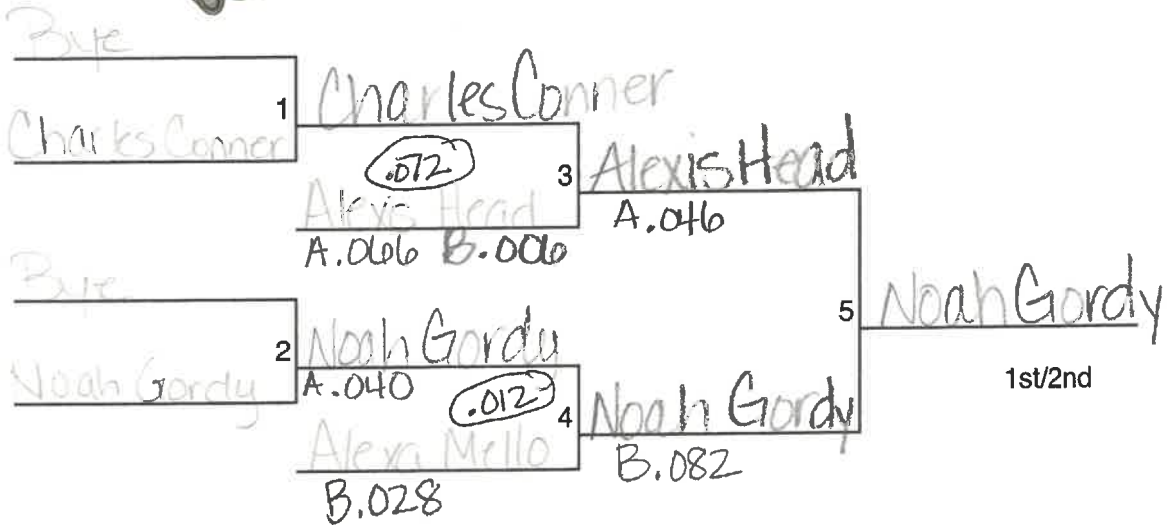 Bye
1
Charles Conner
Charles Conner
.072
3
Alexis Head
Alexis Head
A.066 B.006
A.046
Bye
2
Noah Gordy
Noah Gordy
A.040
.012
4
Alexa Mello
B.028
Noah Gordy
B.082
5
Noah Gordy
1st/2nd